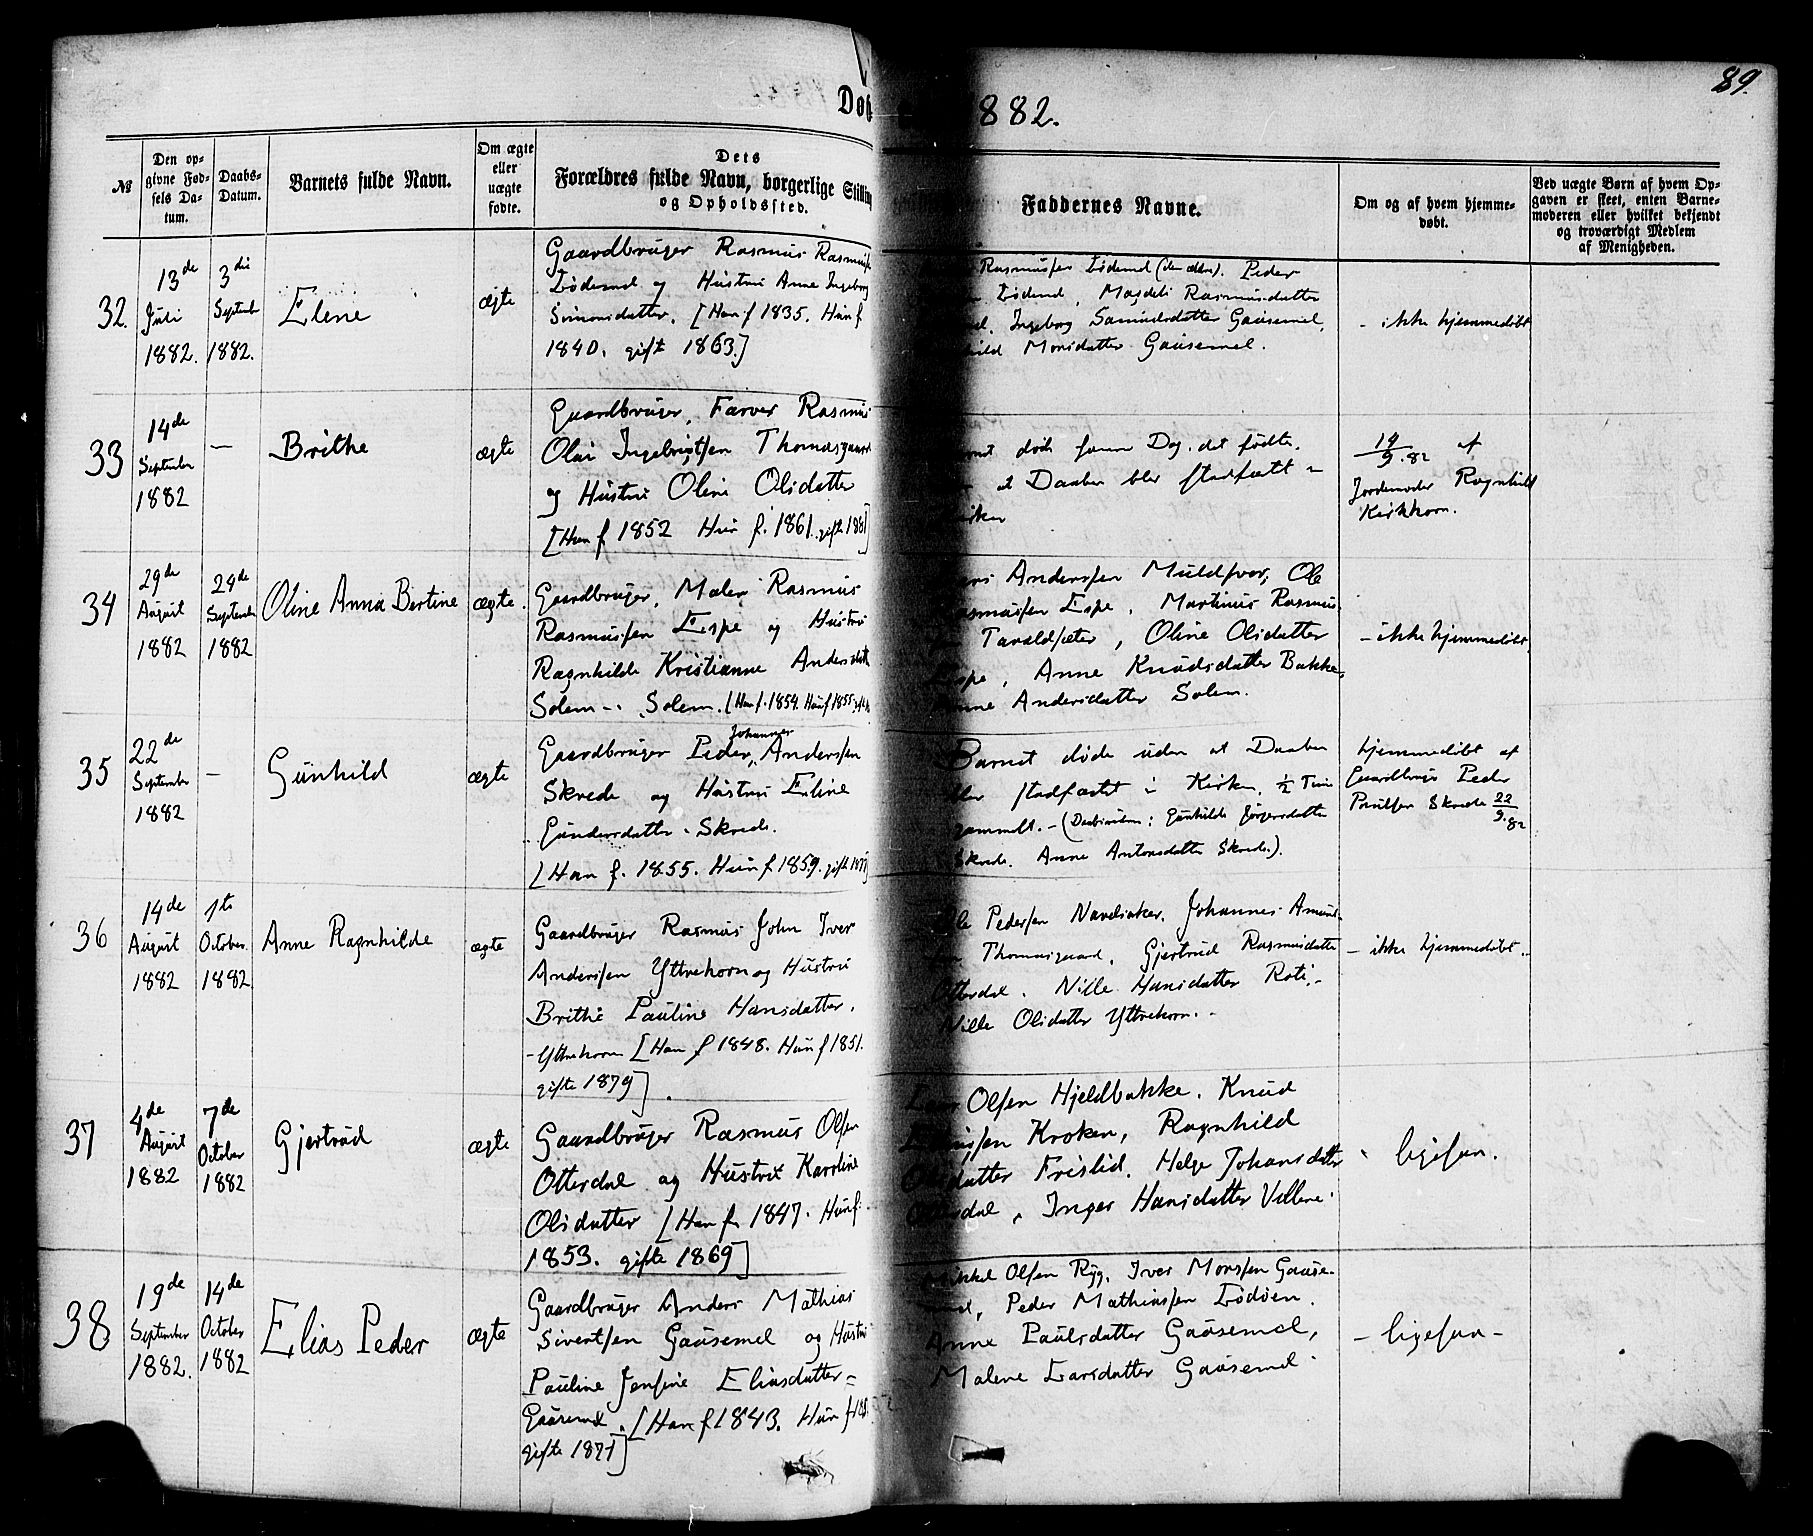 89.
Døb 882.
№
Den op-
givne Fød-
sels Da-
tum.
Daabs-
Datum.
Barnets fulde Navn.
Om ægte
eller
uægte
fødte.
Dets
Forældres fulde Navn, borgerlige Stilling
og Opholdssted.
Faddernes Navne.
Om og af hvem hjemme-
døbt.
Ved uægte Børn af hvem Op-
gaven er skeet, enten Barne-
moderen eller hvilket bekjendt
og troværdigt Medlem
af Menigheden.
32.
13de
Juli
1882.
3die
September
1882.
Elene
ægte
Gaardbruger Rasmus Rasmus
Lødemel og Hustru Anne Ingeborg
Simonsdatter. [Han f 1835. Hun f
1840. gift 1863.]
Rasmussen Lødemel (den ældre). Peder
Lødemel, Magdeli Rasmusdatter
Ingeborg Samuelsdatter Gausemel,
Monsdatter Gausemel.
- ikke hjemmedøbt
33
14de
September
1882
—
Brithe
ægte
Gaardbruger, Farver Rasmus
Olai Ingebrigtsen Thomasgaard
og Hustru Oline Olsdatter
[Han f 1852 Hun f. 1861. gift 1881]
døde samme Dag det fødtes.
at Daaben blev stadfæstet i
14/9.82 af
Jordemoder Ragnhild
Kirkhorn.
34
29de
August
1882
24de
September
1882
Oline Anna Bertine
ægte.
Gaardbruger, Maler Rasmus
Rasmussen Espe og Hustru
Ragnhilde Kristianne Andersdatt
Solem -. Solem. [Han f. 1854. Hun f 1855
Andersen Muldsvor, Ole
Rasmussen Espe, Martinus Rasmus-
Taraldsæter, Oline Olsdatter
Espe, Anne Knudsdatter Bakke,
Anne Andersdatter Solem.
- ikke hjemmedøbt.
35
22de
September
1882
—
Gunhild
ægte
Johannes
Gaardbruger Peder Andersen
Skrede og Hustru Eline
Gundersdatter. Skrede.
[Han f. 1855. Hun f 1859. gift 1877]
Barnet døde uden at Daaben
blev stadfæstet i Kirken, ½ Time
gammelt. - (Daabsvidner: Gunhilde Jørgensdatter
Skrede. Anne Antonsdatter Skrede.).
hjemmedøbt af
Gaardbruger Peder
Poulsen Skrede 22/9.82
36
14de
August
1882
1ste
October.
1882
Anne Ragnhilde
ægte
Gaardbruger Rasmus John Iver
Andersen Yttrehorn og Hustru
Brithe Pauline Hansdatter.
- Yttrehorn [Han f 1848. Hun f 1851.
gifte 1879].
Ole Pedersen Navelsaker. Johannes Amund-
Thomasgaard, Gjertrud Rasmusdatter
Otterdal. Nille Hansdatter Roti,-
Nille Olsdatter Yttrehorn.-
- ikke hjemmedøbt.
37
4de
August
1882
7de
October
1882
Gjertrud
ægte
Gaardbruger Rasmus Olsen
Otterdal og Hustru Karoline
Olsdatter [Han f. 1847. Hun f.
1853. gifte 1869]
Olsen Hjeldbakke. Knud
Kroken, Ragnhild
Olsdatter Frislid. Helge Johansdatter
Otterdal, Inger Hansdatter Vollene.
- ligesaa.
38
19de
September
1882.
14de
October
1882
Elias Peder
ægte
Gaardbruger Anders Mathias
Sivertsen Gausemel og Hustru
Pauline Jensine Eliasdatter =
Gausemel. [Han f 1843. Hun f
gifte 1871]
Mikkel Olsen Ryg, Iver Monsen Gause-
mel, Peder Mathiassen Lødøen.
Anne Paulsdatter Gausemel,
Malene Larsdatter Gausemel.
- ligesaa -